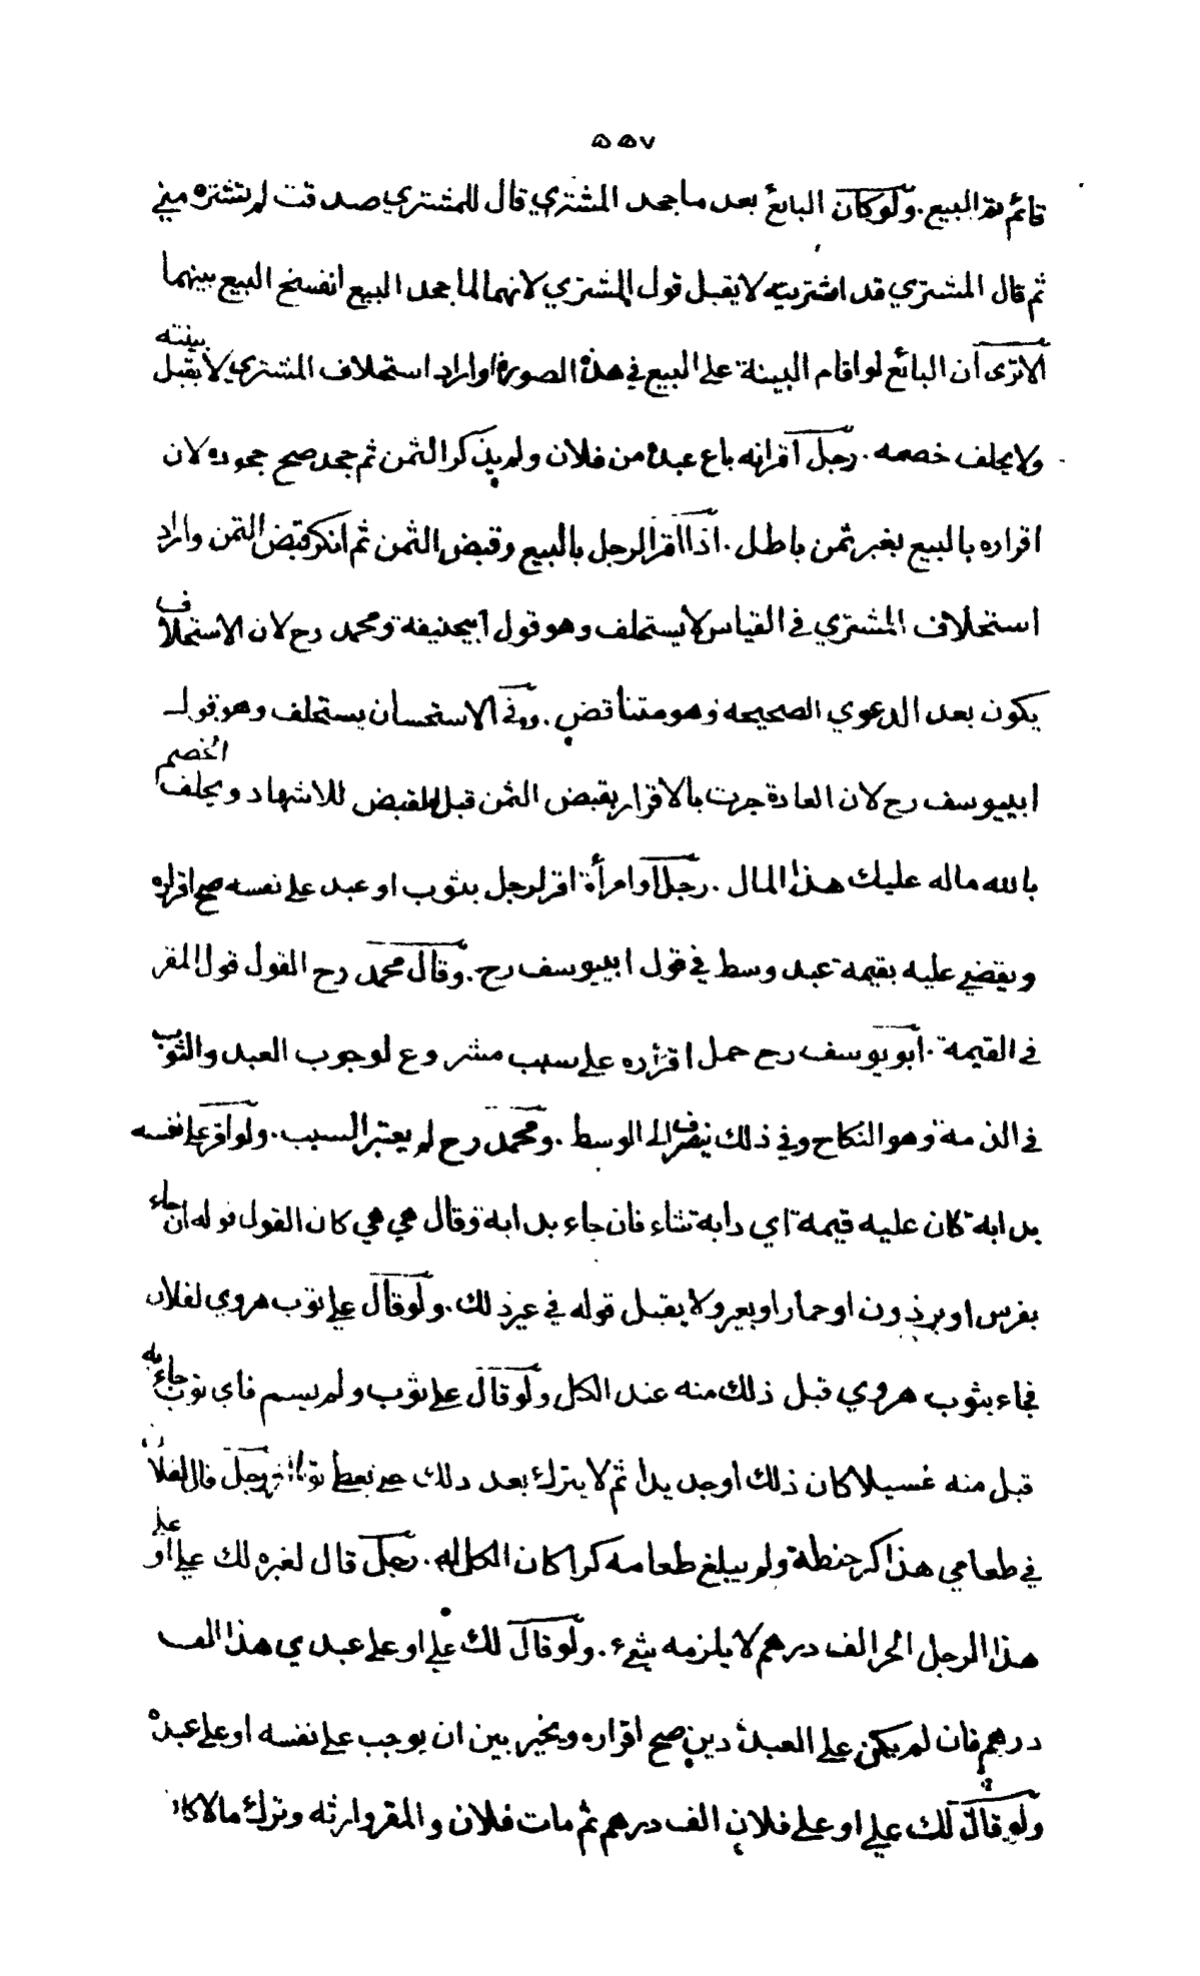 ٥٥٧
قائم تم البيع. ولو كان البائع بعد ما جحد المشتري قال للمشتري صدقت لم تشتره مني
ثم قال المشتري قد اشتريته لا يقبل قول المشتري لانهما لما جحدا البيع انفسخ البيع بينهما
الا ترى ان البائع لو اقام البينة على البيع في هذه الصورة او اراد استحلاف المشتري لا يقبل بينته
ولا يحلف خصمه. رجل اقر انه باع عبده من فلان ولم يذكر الثمن ثم جحد صح جحوده لان
اقراره بالبيع بغير ثمن باطل. اذا اقر الرجل بالبيع وقبض الثمن ثم انكر قبض الثمن واراد
استحلاف المشتري في القياس لا يستحلف وهو قول ابيحنيفة ومحمد رح لان الاستحلاف
يكون بعد الدعوي الصحيحه وهو متناقض. وفي الاستحسان يستحلف وهو قول
ابييوسف رح لان العادة جرت بالاقرار بقبض الثمن قبل القبض للاشهاد ويحلف الخصم
بالله ماله عليك هذا المال. رجل او امرأة اقر لرجل بثوب او عبد على نفسه صح اقراره
ويقضي عليه بقيمة عبد وسط في قول ابييوسف رح. وقال محمد رح القول قول المقر
في القيمة. ابو يوسف رح حمل اقراره على سبب مشروع لوجوب العبد والثوب
في الذمة وهو النكاح وفي ذلك ينصرف الى الوسط. ومحمد رح لم يعتبر السبب. ولو اقر على نفسه
بدابة كان عليه قيمة اي دابة شاء فان جاء بدابة وقال هي هي كان القول قوله ان جاء
بفرس او برذون او حمار او بعير ولا يقبل قوله في غير ذلك. ولو قال علي ثوب هروي لفلان
فجاء بثوب هروي قبل ذلك منه عند الكل ولو قال علي ثوب ولم يسم فاي ثوب جاء به
قبل منه غسيلا كان ذلك او جديدا ثم لا يترك بعد ذلك حتى يعطي ثوبا رجل قال لفلان
في طعامي هذا كر حنطة ولم يبلغ طعامه كرا كان الكل له. رجل قال لغيره لك علي او على
هذا الرجل الحر الف درهم لا يلزمه شيء. ولو قال لك علي او على عبدي هذا الف
درهم فان لم يكن على العبد دين صح اقراره ويخير بين ان يوجب على نفسه او على عبده
ولو قال لك علي او على فلان الف درهم ثم مات فلان والمقر وارثه وترك مالا كان